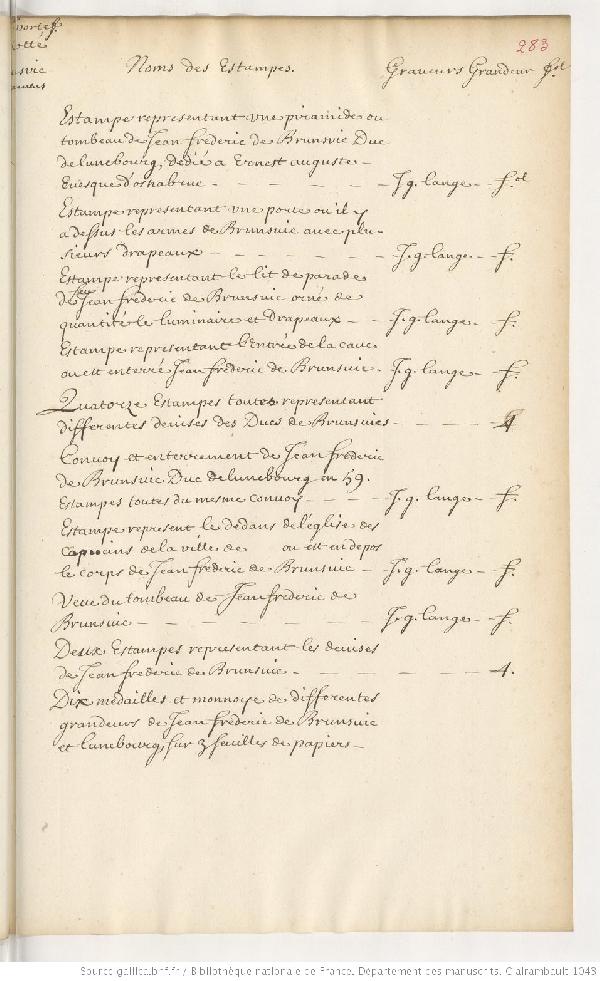 283
Noms des Estampes. Graveurs Grandeur
Estampe representant vne piramide ou
tombeau de Jean frederic de Brunsvic Duc
de lunebourg, dedié a Ernest auguste –
Evesque d'osnabruc – – – – – J. g. lange – f.ol
Estampe representant vne porte ou il y
a dessus les armes de Brunsvic avec plu-
sieurs drapeaux – – – – – J. g. lange – f.
Estampe representant le lit de parade
de feu Jean frederic de Brunsvic orné de
quantité de luminaire et Drapeaux – – J. g. lange – f.
Estampe representant l'Entrée de la cave
ou est enterré Jean frederic de Brunsvic. J. g. lange – f.
Quatorze Estampes toutes representant
differentes devises des Ducs de Brunsvics – – – – 4
Convoy et enterrement de Jean frederic
de Brunsvic Duc de lunebourg en 59.
Estampes toutes du mesme convoy – – – J. g. lange – f.
Estampe represent le dedans de l'église des
Capucins de la ville de ou est en depos
le corps de Jean frederic de Brunsvic – J. g. lange – f.
Veue du tombeau de Jean frederic de
Brunsvic – – – – – – J. g. lange – f.
Deux Estampes representant les devises
de Jean frederic de Brunsvic – – – – – 4.
Dix medailles et monnoye de differentes
grandeurs de Jean frederic de Brunsvic
et lunebourg, sur 3 feuilles de papiers –
Source gallica.bnf.fr / Bibliothèque nationale de France. Département des manuscrits. Clairambault 1043